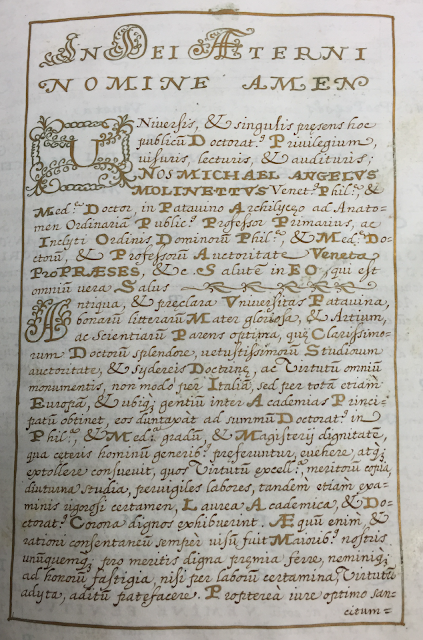 IN DEI ÆTERNI
NOMINE AMEN
UNiversis, & singulis presens hoc
publicũ Doctorat.ˢ Privilegium,
visuris, lecturis, & audituris;
NOS MICHAEL ANGELUS
MOLINETTUS Venet.ˢ Phil.ᵉ, &
Med.ᵉ Doctor, in Patavino Archilycęo ad Anato-
men Ordinariã Public.ˢ Professor Primarius, ac
Inclyti Ordinis Dominorũ Phil.ᵉ, & Med.ᵉ Do-
ctorũ, & Professorũ Auctoritate Veneta
ProPRÆSES, & c. Salutẽ in EO, qui est
omniũ vera Salus
Antiqua, & pręclara Vniversitas Patavina,
bonarũ litterarũ Mater gloriosa, & Artium,
ac Scientiarũ Parens optima, quę Clarissimo-
rum Doctorũ splendore, vetustissimorũ Studiorum
auctoritate, & sydereis Doctrinę, ac Virtutũ omniũ
monumentis, non modo per Italiã, sed per totã etiam
Europã, & ubiq; gentiũ inter Academias Princi-
patũ obtinet, eos duntaxàt ad summũ Doctorat.ˢ in
Phil.ᵃ, & Med.ᵃ gradũ, & Magisterij dignitatẽ,
qua cęteris hominũ generib.ˢ pręferuntur, evehere, atq;
extollere consuevit, quos Virtutũ excell.ᵃ, meritorũ copia,
diuturna Studia, pervigiles labores, tandem etiam exa-
minis rigorosi certamen, Laurea Academica, & Do-
ctorat.ˢ Corona dignos exhibuerint. Æquũ enim, &
rationi consentaneũ semper visũ fuit Maiorib.ˢ nostris
unũquemq; pro meritis digna pręmia ferre, neminiq;
ad honorũ fastigia, nisi per laborũ certamina, Virtutũ
adyta, aditũ patefacere. Propterea iure optimo san-
citum=